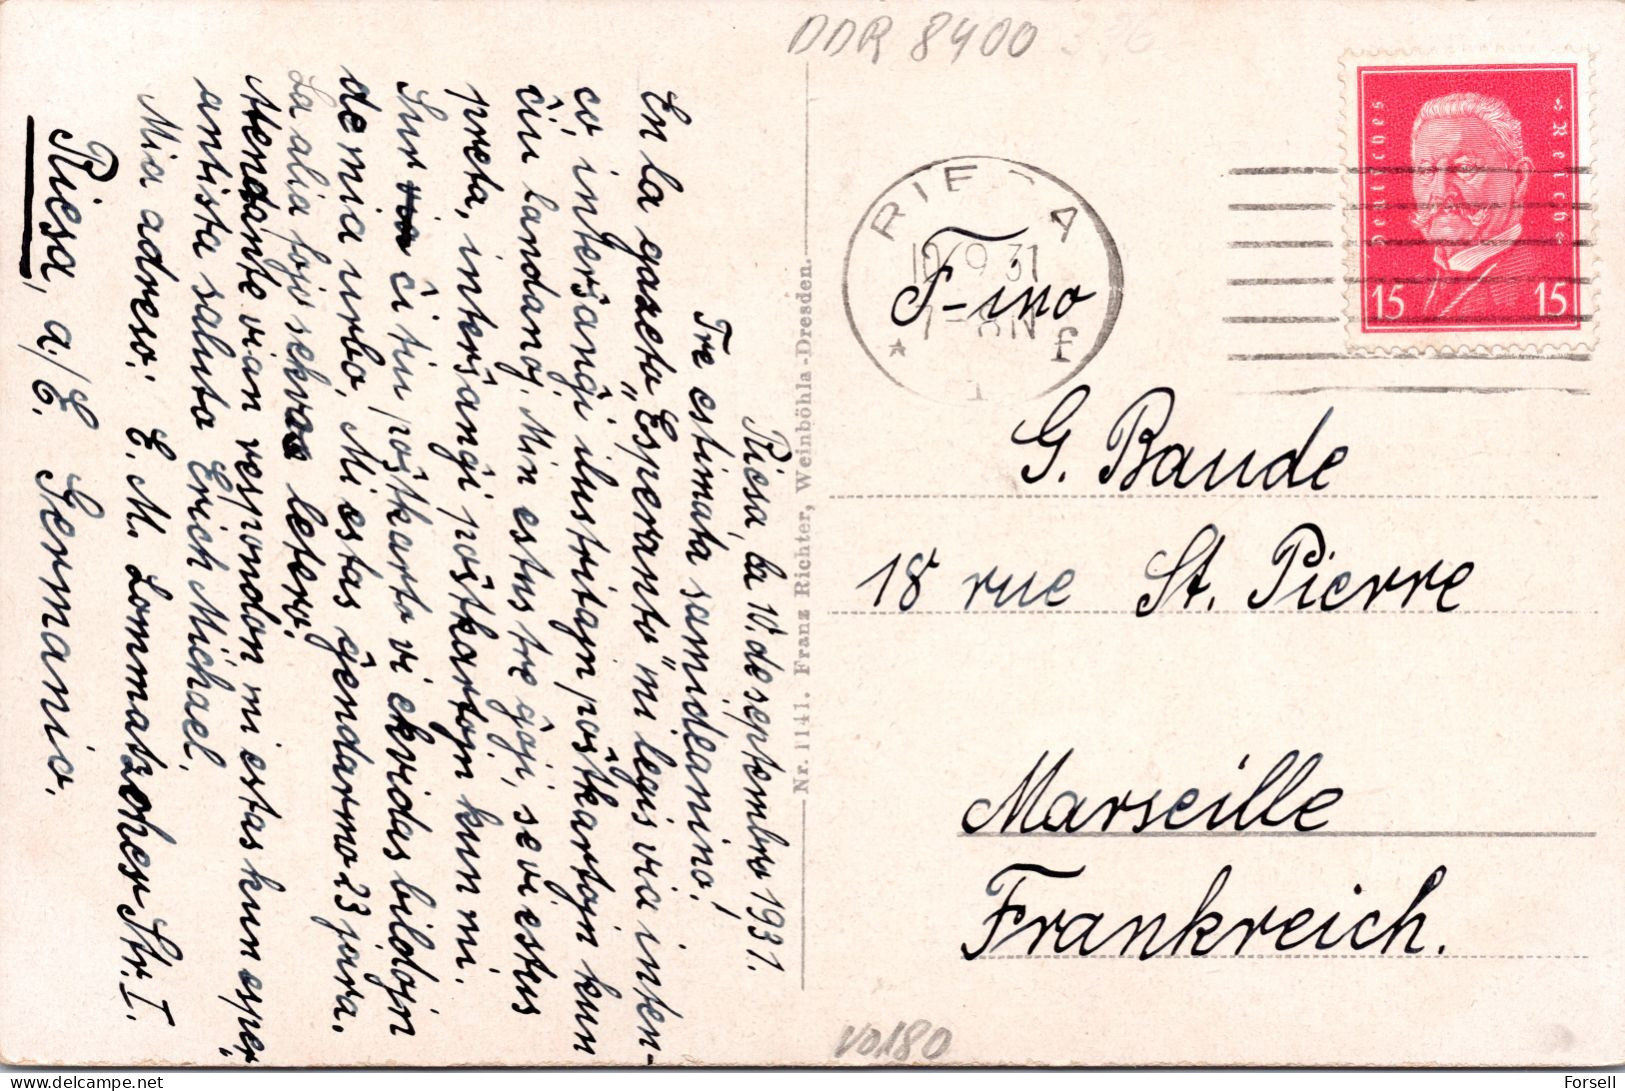 DDR 8400
Riesa, la 10. de septembro 1931.
Tre estimata samideanino!
En la gazeto „Esperanto" mi legis via inten-
co, interŝanĝi ilustritajn poŝtkartojn kun
ĉiu landanoj. Min estus tre ĝoji, se vi estus
preta, interŝanĝi poŝtkartojn kun mi.
Sur ĉi tiu poŝtkarto vi ekvidas bildojn
de mia urbo. Mi estas ĝendarmo 23 jara.
La alia fojo sekvas letero.
Atendante vian respondon mi estas kun esper
antista saluto Erich Michael.
Mia adreso: E. M. Lommatzscher Str. I
Riesa, a./E. Germanio.
Nr. 1141. Franz Richter, Weinböhla-Dresden.
RIESA
10.9.31
7-8N
* 1 f
Deutsches Reich
15 15
F-ino
G. Baude
18 rue St. Pierre
Marseille
Frankreich.
Vo180
Forsell